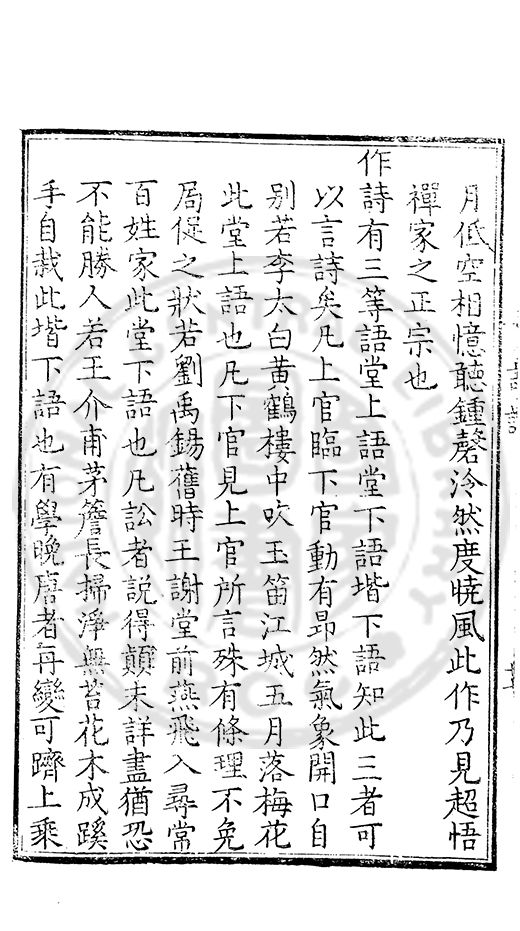 月低空相憶聽鍾磬泠然度曉風此作乃見超悟
禪家之正宗也
作詩有三等語堂上語堂下語堦下語知此三者可
以言詩矣凡上官臨下官動有昂然氣象開口自
别若李太白黃鶴樓中吹玉笛江城五月落梅花
此堂上語也凡下官見上官所言殊有條理不免
局促之狀若劉禹錫舊時王謝堂前燕飛入尋常
百姓家此堂下語也凡訟者説得顛末詳盡猶恐
不能勝人若王介甫茅簷長掃淨無苔花木成蹊
手自栽此堦下語也有學晚唐者再變可躋上乘